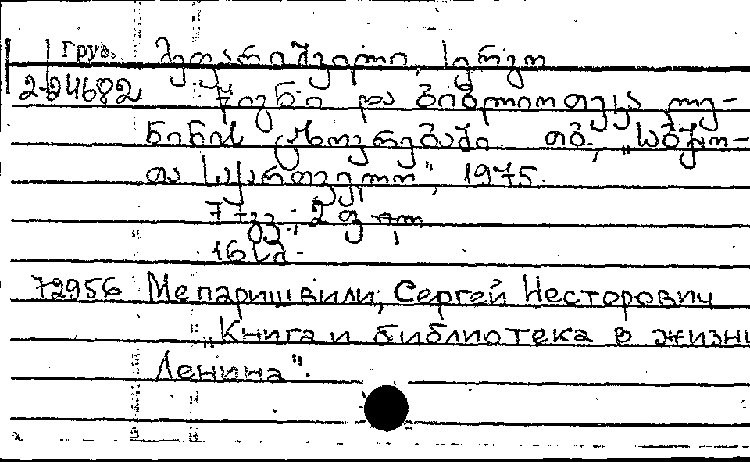 Груз. მეფარიშვილი, სერგო
2-24682 წიგნი და ბიბლიოთეკა ლე-
ნინის ცხოვრებაში. თბ., „საბჭო-
თა საქართველო", 1975.
77 გვ.; 2 ფ.
16 სმ.
72956 Мепаришвили, Сергей Несторович
„Книга и библиотека в жизни
Ленина".